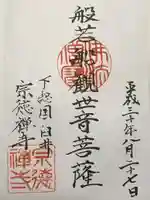 平成三十年八月二十七日
般若船観世音菩薩
下総国臼井
宗徳禅寺